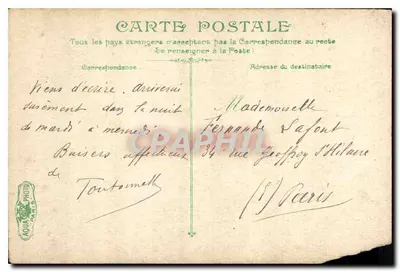 CARTE POSTALE
Tous les pays étrangers n'acceptent pas la Correspondance au recto
Se renseigner à la Poste!
Correspondance
Adresse du destinataire
Viens d'écrire. Arriverai
sûrement dans la nuit
de mardi à mercredi.
Baisers affectueux
de
Mademoiselle
Fernande Lafont
34 rue Geoffroy St Hilaire
Paris
AQUA PHOTO
PARIS
Delcampe